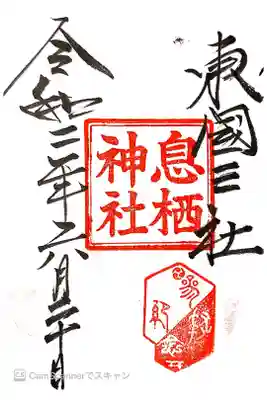 東國三社
息栖
神社
令和二年六月二十日
CamScannerでスキャン